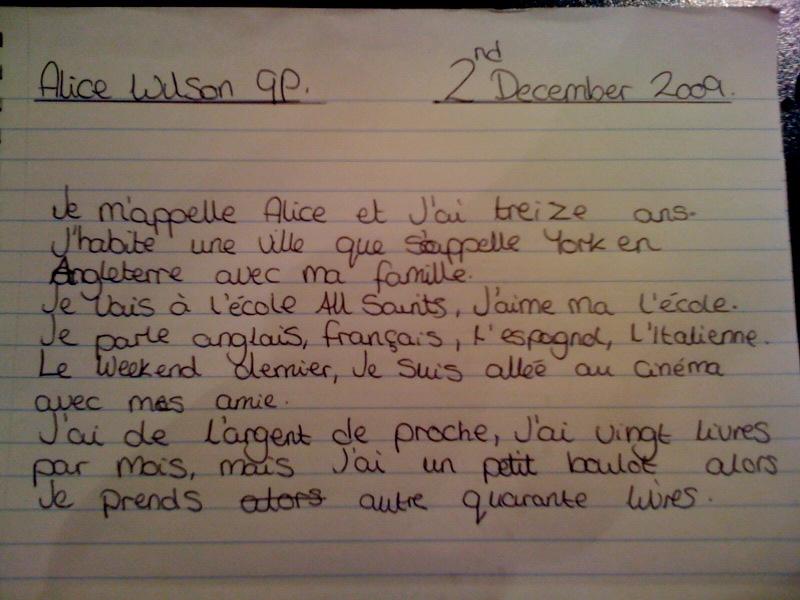 Alice Wilson 9P. 2nd December 2009.
Je m'appelle Alice et J'ai treize ans.
J'habite une ville que s'appelle York en
Angleterre avec ma famille.
Je vais à l'école All Saints, J'aime ma l'école.
Je parle anglais, français, l'espagnol, L'Italienne.
Le Weekend dernier, Je suis alleé au cinéma
avec mes amie.
J'ai de l'argent de proche, J'ai vingt livres
par mois, mais J'ai un petit boulot alors
Je prends alors autre quarante livres.